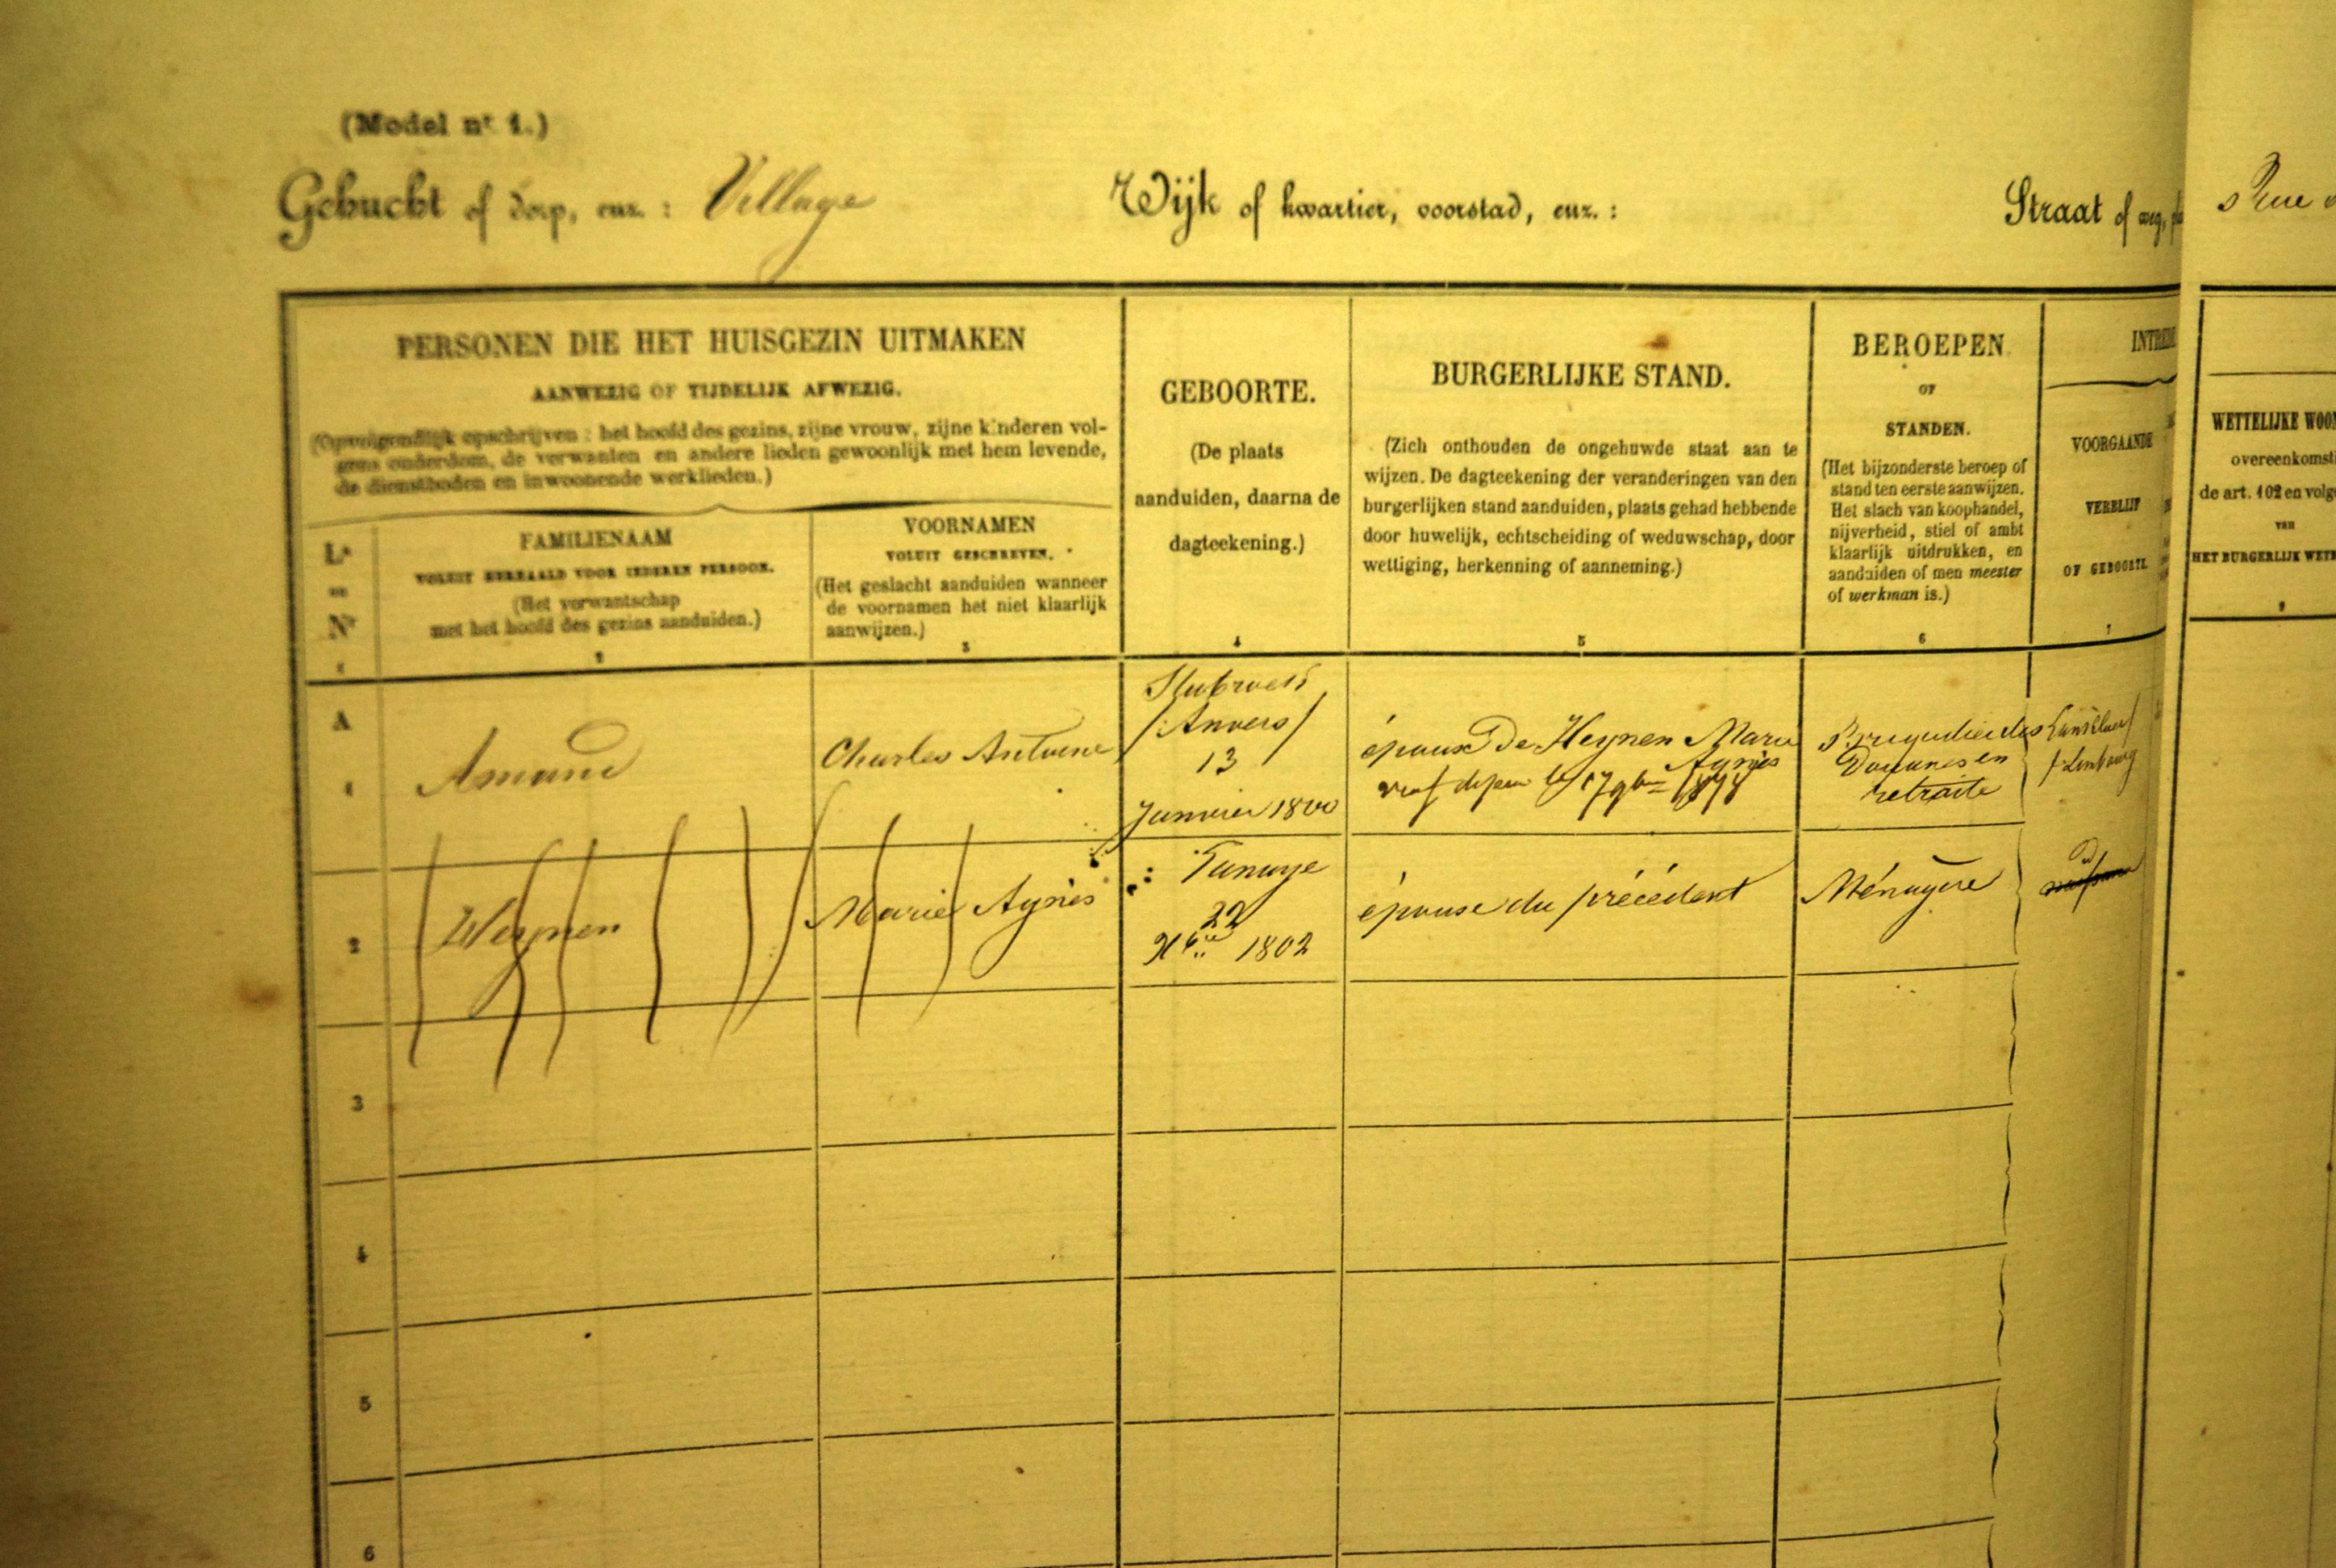 (Model nr 1.)
Gehucht of dorp, enz. : Village Wijk of kwartier, voorstad, enz. : Straat of weg, Rue
PERSONEN DIE HET HUISGEZIN UITMAKEN
AANWEZIG OF TIJDELIJK AFWEZIG.
(Opvolgendlijk opschrijven : het hoofd des gezins, zijne vrouw, zijne kinderen vol-
gens ouderdom, de verwanten en andere lieden gewoonlijk met hem levende,
de dienstboden en inwoonende werklieden.)
Lr
en
Nr
1
FAMILIENAAM
VOLUIT HERHAALD VOOR IEDEREN PERSOON.
(Het verwantschap
met het hoofd des gezins aanduiden.)
2
VOORNAMEN
VOLUIT GESCHREVEN.
(Het geslacht aanduiden wanneer
de voornamen het niet klaarlijk
aanwijzen.)
3
GEBOORTE.
(De plaats
aanduiden, daarna de
dagteekening.)
4
BURGERLIJKE STAND.
(Zich onthouden de ongehuwde staat aan te
wijzen. De dagteekening der veranderingen van den
burgerlijken stand aanduiden, plaats gehad hebbende
door huwelijk, echtscheiding of weduwschap, door
wettiging, herkenning of aanneming.)
5
BEROEPEN
OF
STANDEN.
(Het bijzonderste beroep of
stand ten eerste aanwijzen.
Het slach van koophandel,
nijverheid, stiel of ambt
klaarlijk uitdrukken, en
aanduiden of men meester
of werkman is.)
6
INTREDE
VOORGAANDE
VERBLIJF
OF GEBOORTE
7
WETTELIJKE WOON
overeenkomsti
de art. 102 en volge
van
HET BURGERLIJK WETB
9
A
1
Amand
Charles Antoine
/Anvers/
13
Janvier 1800
époux De Heynen Marie
Agnès
veuf depuis le 17 9bre 1878
Douanes en
retraite
2
Heynen
Marie Agnès
22
Xbre 1802
épouse du précédent
Ménagère
3
4
5
6